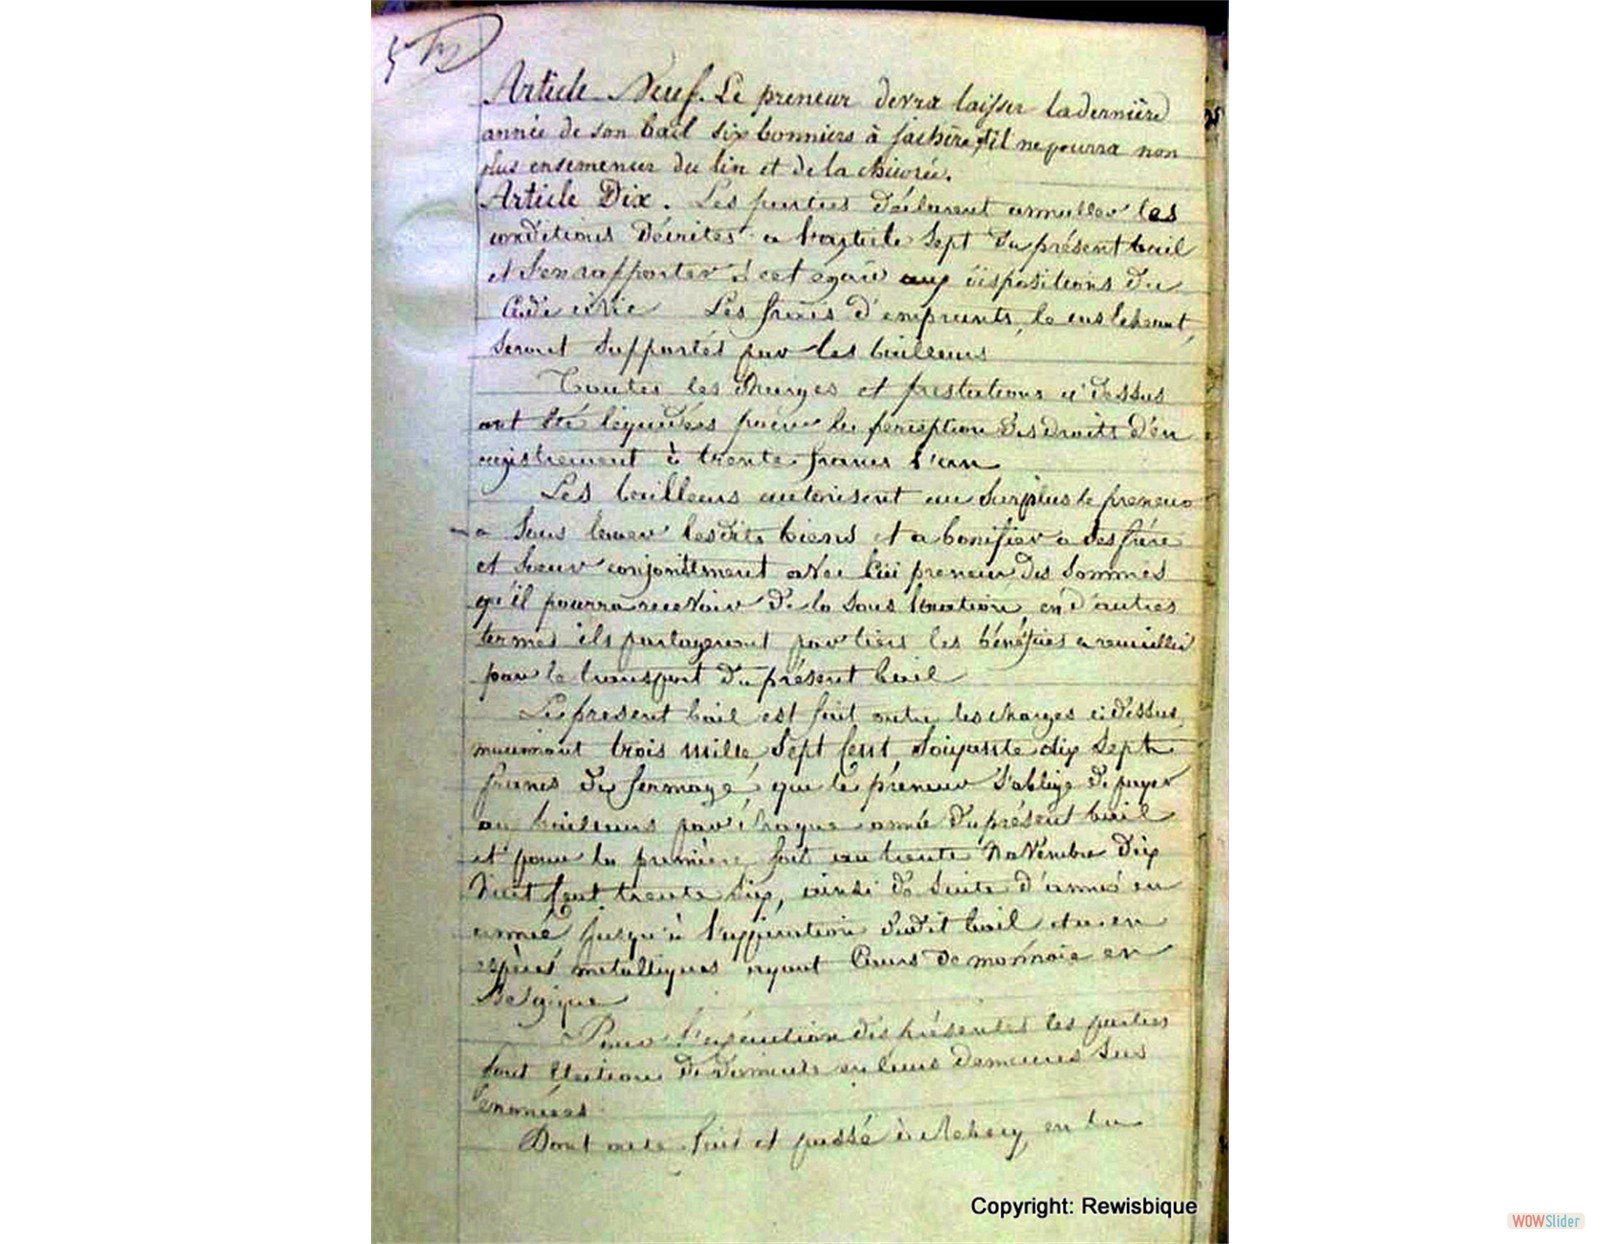 5
Article Neuf. Le preneur devra laisser la dernière
année de son bail six bonniers à jachère, et il ne pourra non
plus ensemencer du lin et de la chicorée.
Article Dix. Les parties déclarent annuller les
conditions décrites a l'article Sept du présent bail
et s'en rapporter à cet égard aux dispositions du
Code civil Les frais d'emprunts, le cas échéant,
seront supportés par les bailleurs
Toutes les charges et prestations ci dessus
ont été liquidées pour la perception des droits d'en
registrement à trente francs l'an
Les bailleurs autorisent au surplus le preneur
a sous louer lesdits biens et a bonifier a ses frère
et soeur conjointement avec lui preneur des sommes
qu'il pourra recevoir de la sous location, en d'autres
termes ils partageront par tiers les bénéfices a recueillir
par le transport du présent bail
Le présent bail est fait outre les charges ci dessus,
moiennant trois mille Sept Cent Soixante dix Sept
francs de fermage, que le preneur s'oblige de payer
au bailleurs par chaque année du présent bail
et pour la première fois au trente Novembre Dix
huit Cent trente Six, ainsi de suite d'année en
année jusqu'à l'expiration dudit bail en
espèces metalliques ayant Cours de monnoie en
Belgique
Pour l'exécution des présentes les parties
font élection de domicile en leurs demeures sus
énoncées
Dont acte fait et passé à Rebecq, en la
Copyright: Rewisbique
WOWSlider